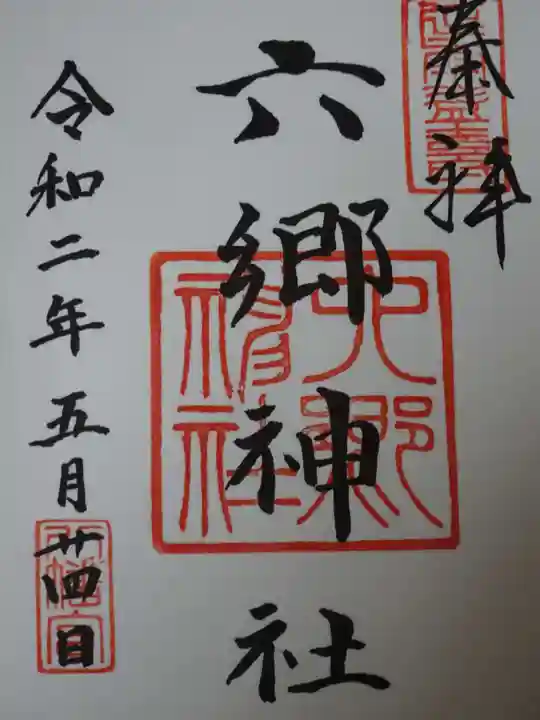 奉拝
六郷神社
令和二年五月廿四日
六郷神社
八幡宮